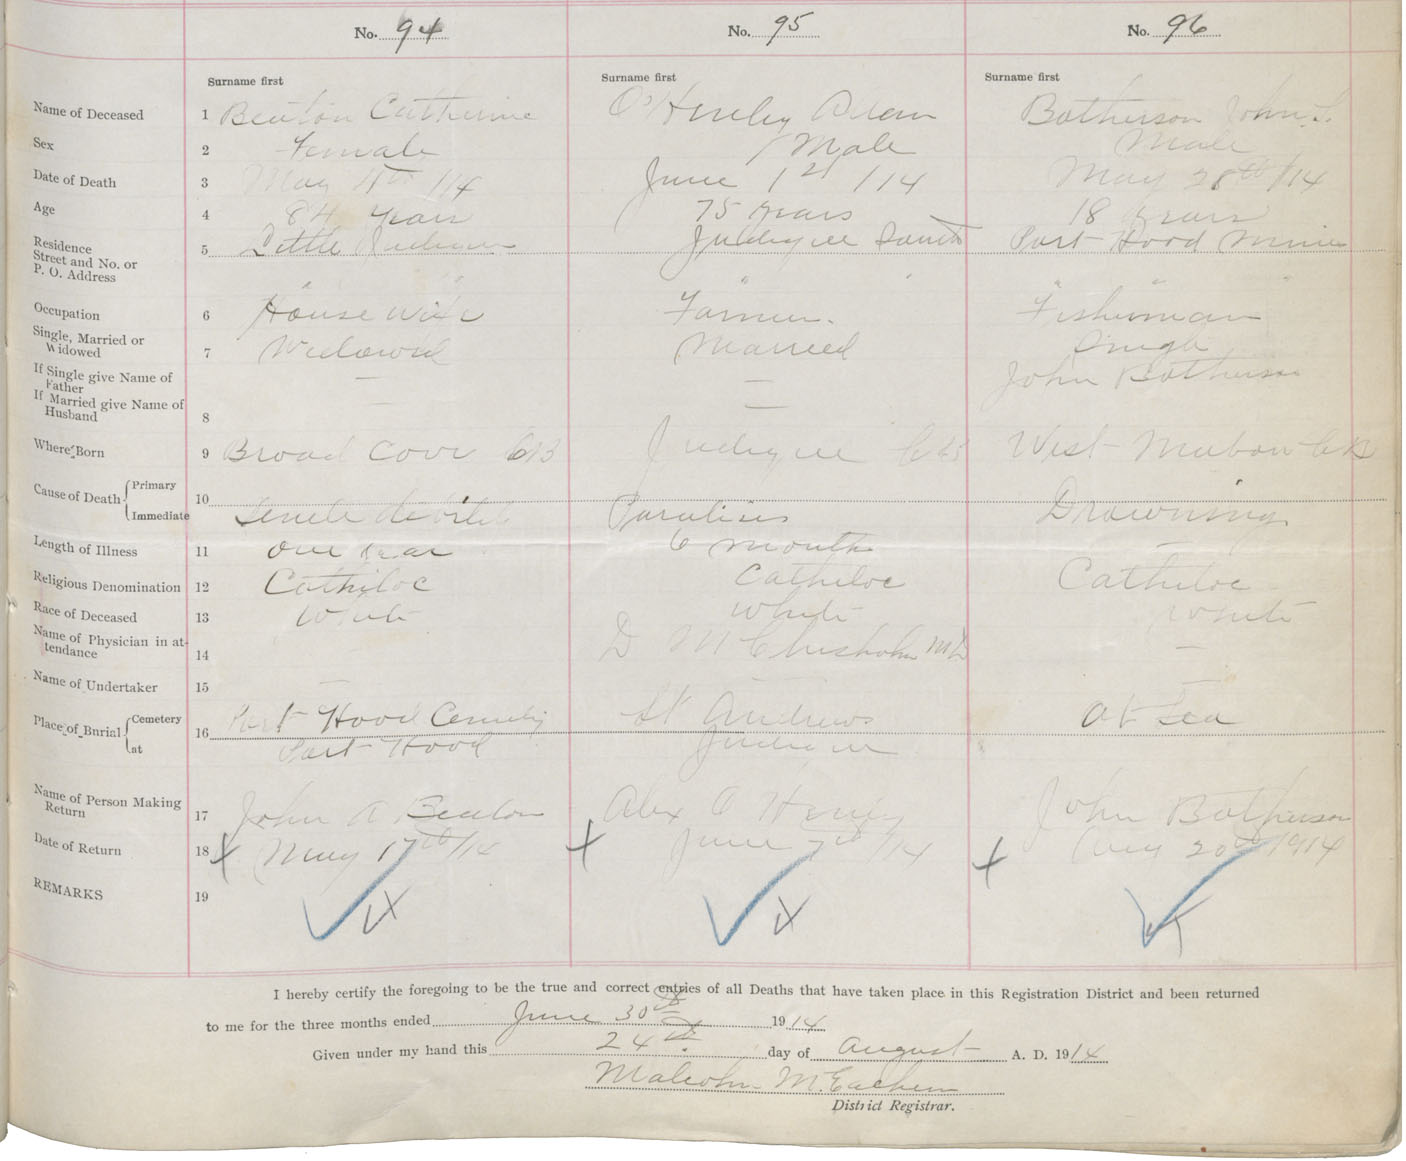 No. 94 No. 95 No. 96
Surname first Surname first Surname first
Name of Deceased 1 Beaton Catherine O'Henley Male Botherson John
Sex 2 Female Male Male
Date of Death 3 May /14 June 1st /14 May 28th /14
Age 4 84 Years 75 Years 18 Years
Residence
Street and No. or 5 Little Judique Judique South Port Hood Mines
P. O. Address
Occupation 6 House Wife Farmer. Fisherman
Single, Married or
Widowed 7 Widowed Married Single
If Single give Name of
Father — — John Botherson
If Married give Name of
Husband 8 — —
Where Born 9 Broad Cove CB Judique CB West Mabou CB
Cause of Death { Primary 10
Immediate Senile debility Paralisis Drowning
Length of Illness 11 One Year 6 months —
Religious Denomination 12 Catholic Catholic Catholic
Race of Deceased 13 White White White
Name of Physician in at-
tendance 14 D M Chisholm MD —
Name of Undertaker 15 — — —
Place of Burial { Cemetery 16 Port Hood Cemetery St Andrews at Sea
at Port Hood Judique
Name of Person Making
Return 17 John A Beaton Alex O Henley John Botherson
Date of Return 18 X May 17th/14 X June 7th /14 X Aug 20th /1914
REMARKS 19
I hereby certify the foregoing to be the true and correct entries of all Deaths that have taken place in this Registration District and been returned
to me for the three months ended June 30th 1914
Given under my hand this 24th. day of August A. D. 1914
Malcolm McEachern
District Registrar.